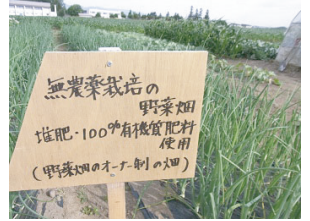 無農薬栽培の
野菜畑
堆肥・100%有機質肥料
使用
(野菜畑のオーナー制の畑)